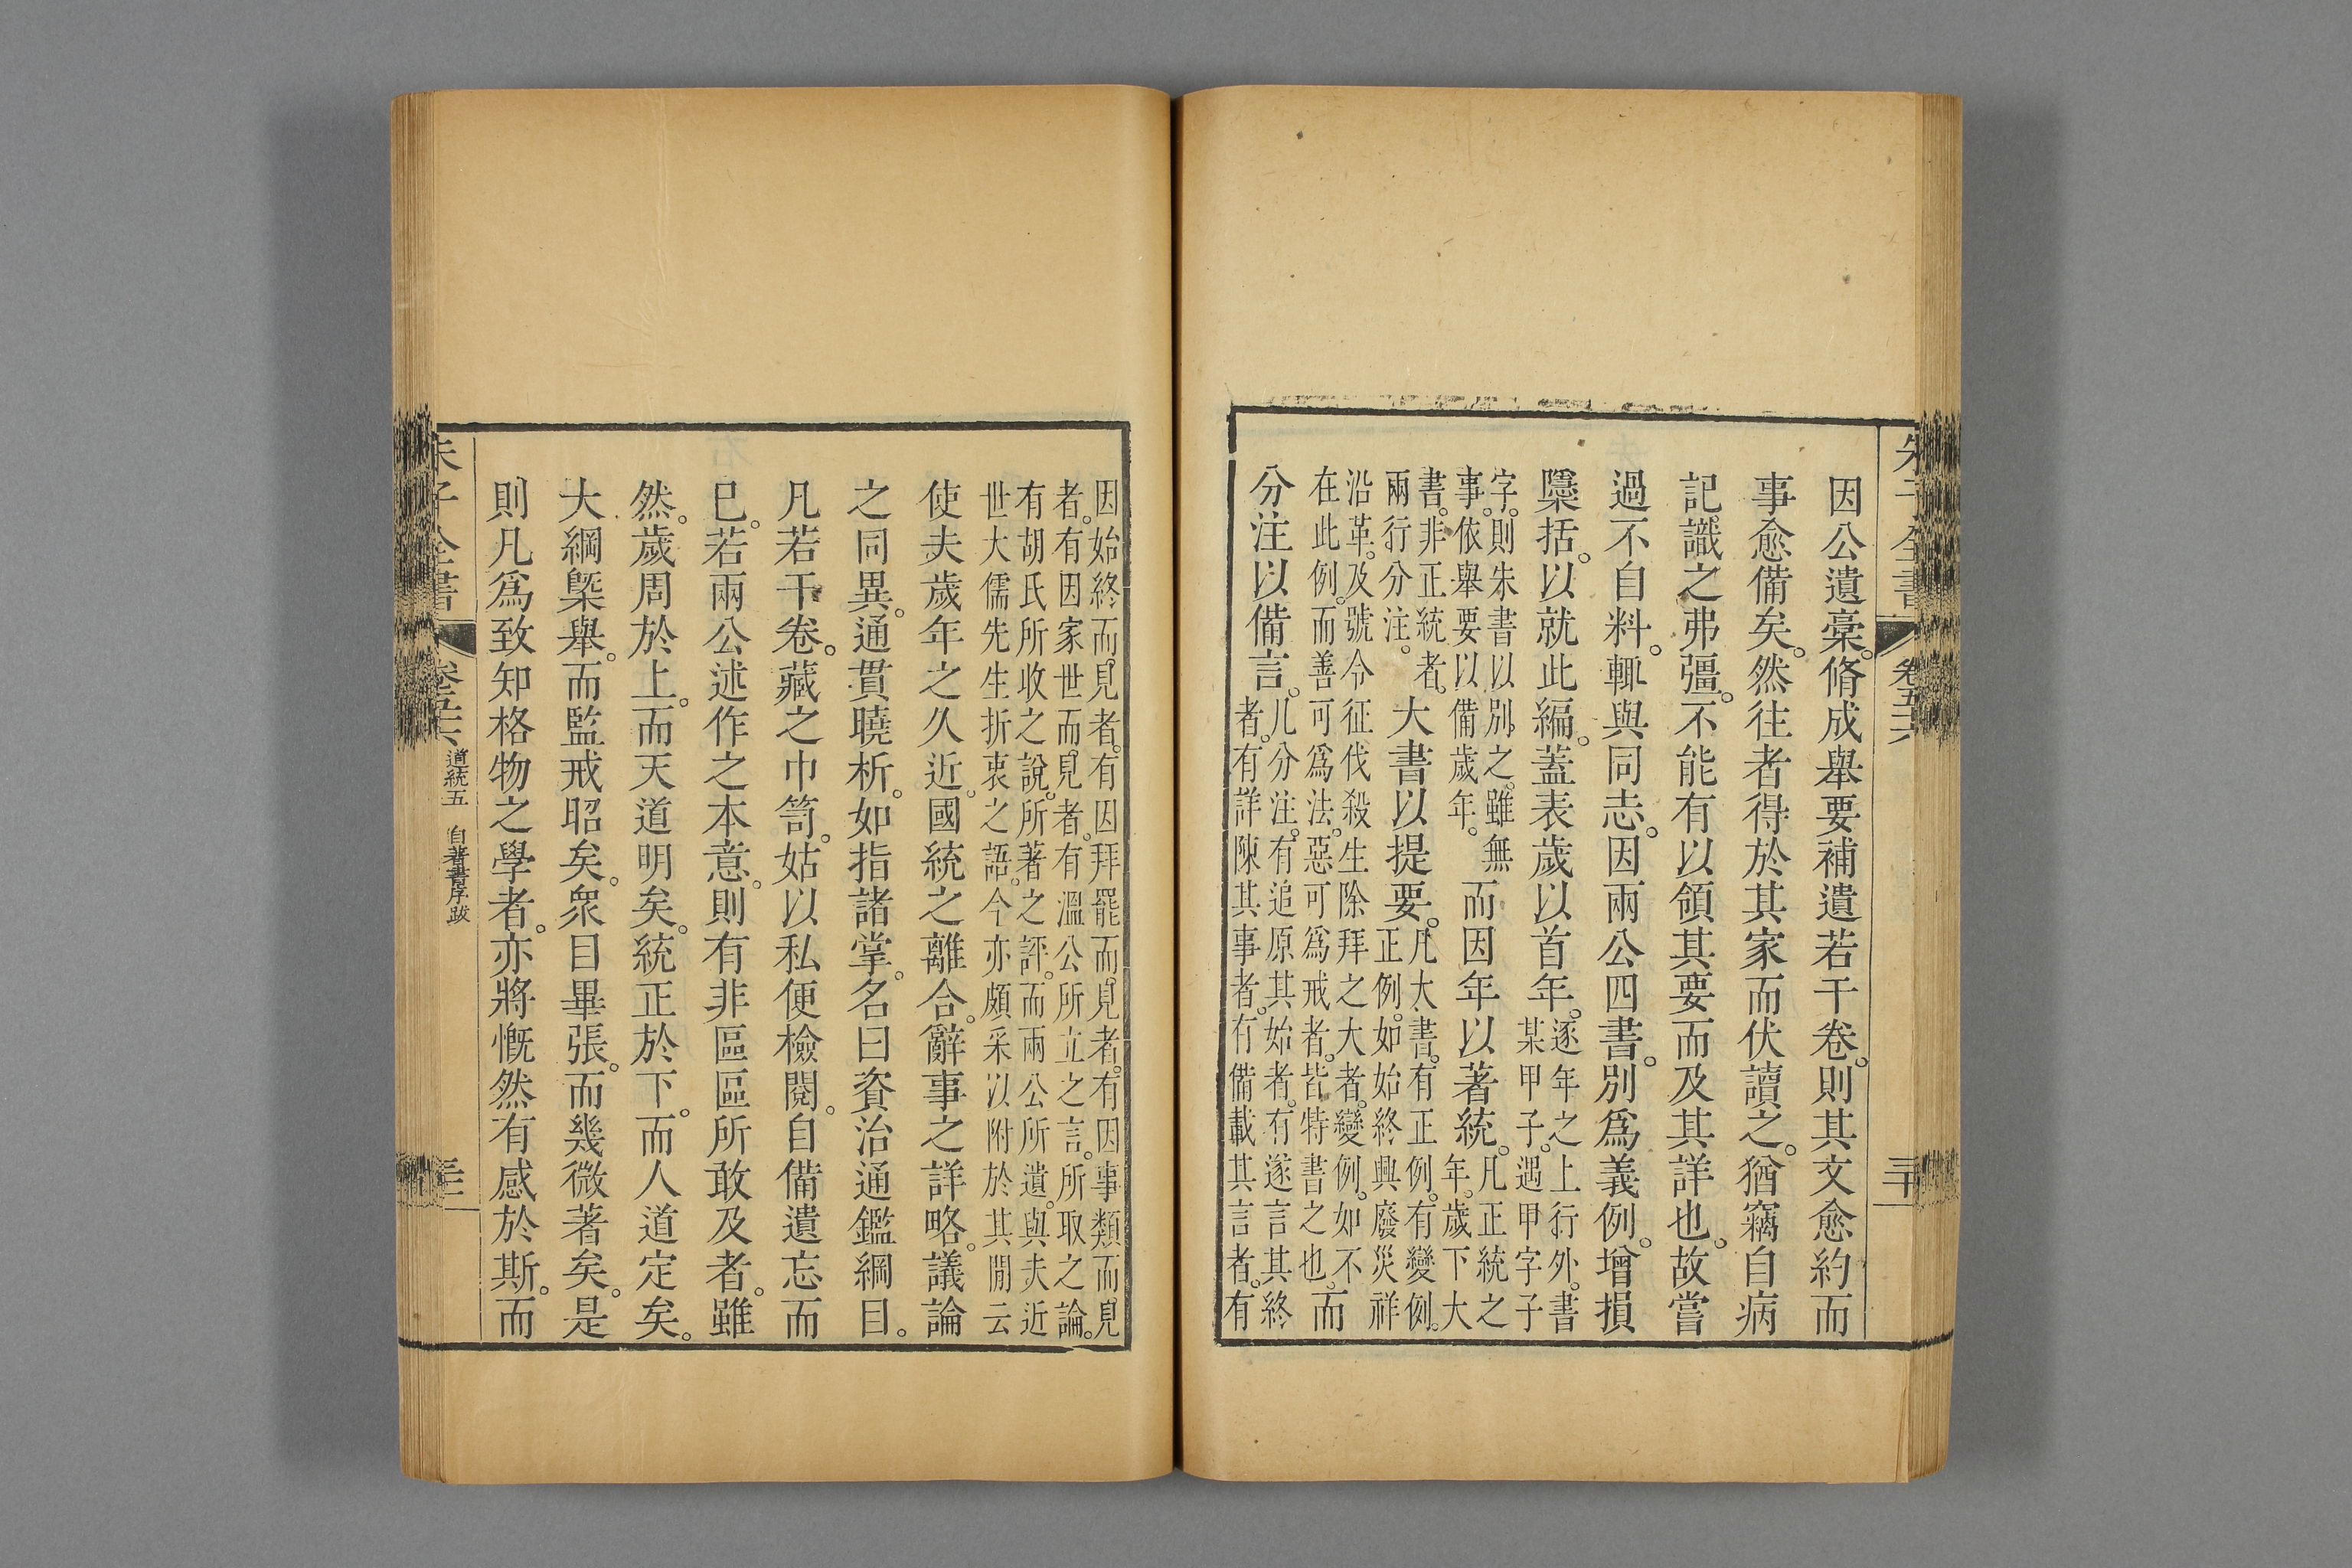 朱子全書 卷五六 三十
因公遺稾。脩成舉要補遺若干卷。則其文愈約而
事愈備矣。然往者得於其家而伏讀之。猶竊自病
記識之弗彊。不能有以領其要而及其詳也。故嘗
過不自料。輒與同志。因兩公四書。別爲義例。增損
櫽括。以就此編。蓋表歲以首年。逐年之上行外。書某甲子。遇甲字子
字。則朱書以別之。雖無事。依舉要以備歲年。而因年以著統。凡正統之年。歲下大
書。非正統者。兩行分注。大書以提要。凡大書。有正例。有變例。正例。如始終興廢災祥
沿革。及號令征伐殺生除拜之大者。變例。如不在此例。而善可爲法。惡可爲戒者。皆特書之也。而
分注以備言。凡分注。有追原其始者。有遂言其終者。有詳陳其事者。有備載其言者。有
因始終而見者。有因拜罷而見者。有因事類而見者。有因家世而見者。有溫公所立之言。所取之論。
有胡氏所收之說。所著之評。而兩公所遺。與夫近世大儒先生折衷之語。今亦頗采以附於其閒云
使夫歲年之久近。國統之離合。辭事之詳略。議論
之同異。通貫曉析。如指諸掌。名曰資治通鑑綱目。
凡若干卷。藏之巾笥。姑以私便檢閱。自備遺忘而
已。若兩公述作之本意。則有非區區所敢及者。雖
然。歲周於上。而天道明矣。統正於下。而人道定矣。
大綱槩舉。而監戒昭矣。衆目畢張。而幾微著矣。是
則凡爲致知格物之學者。亦將慨然有感於斯。而
朱子全書 卷五六 道統五 自著書序跋